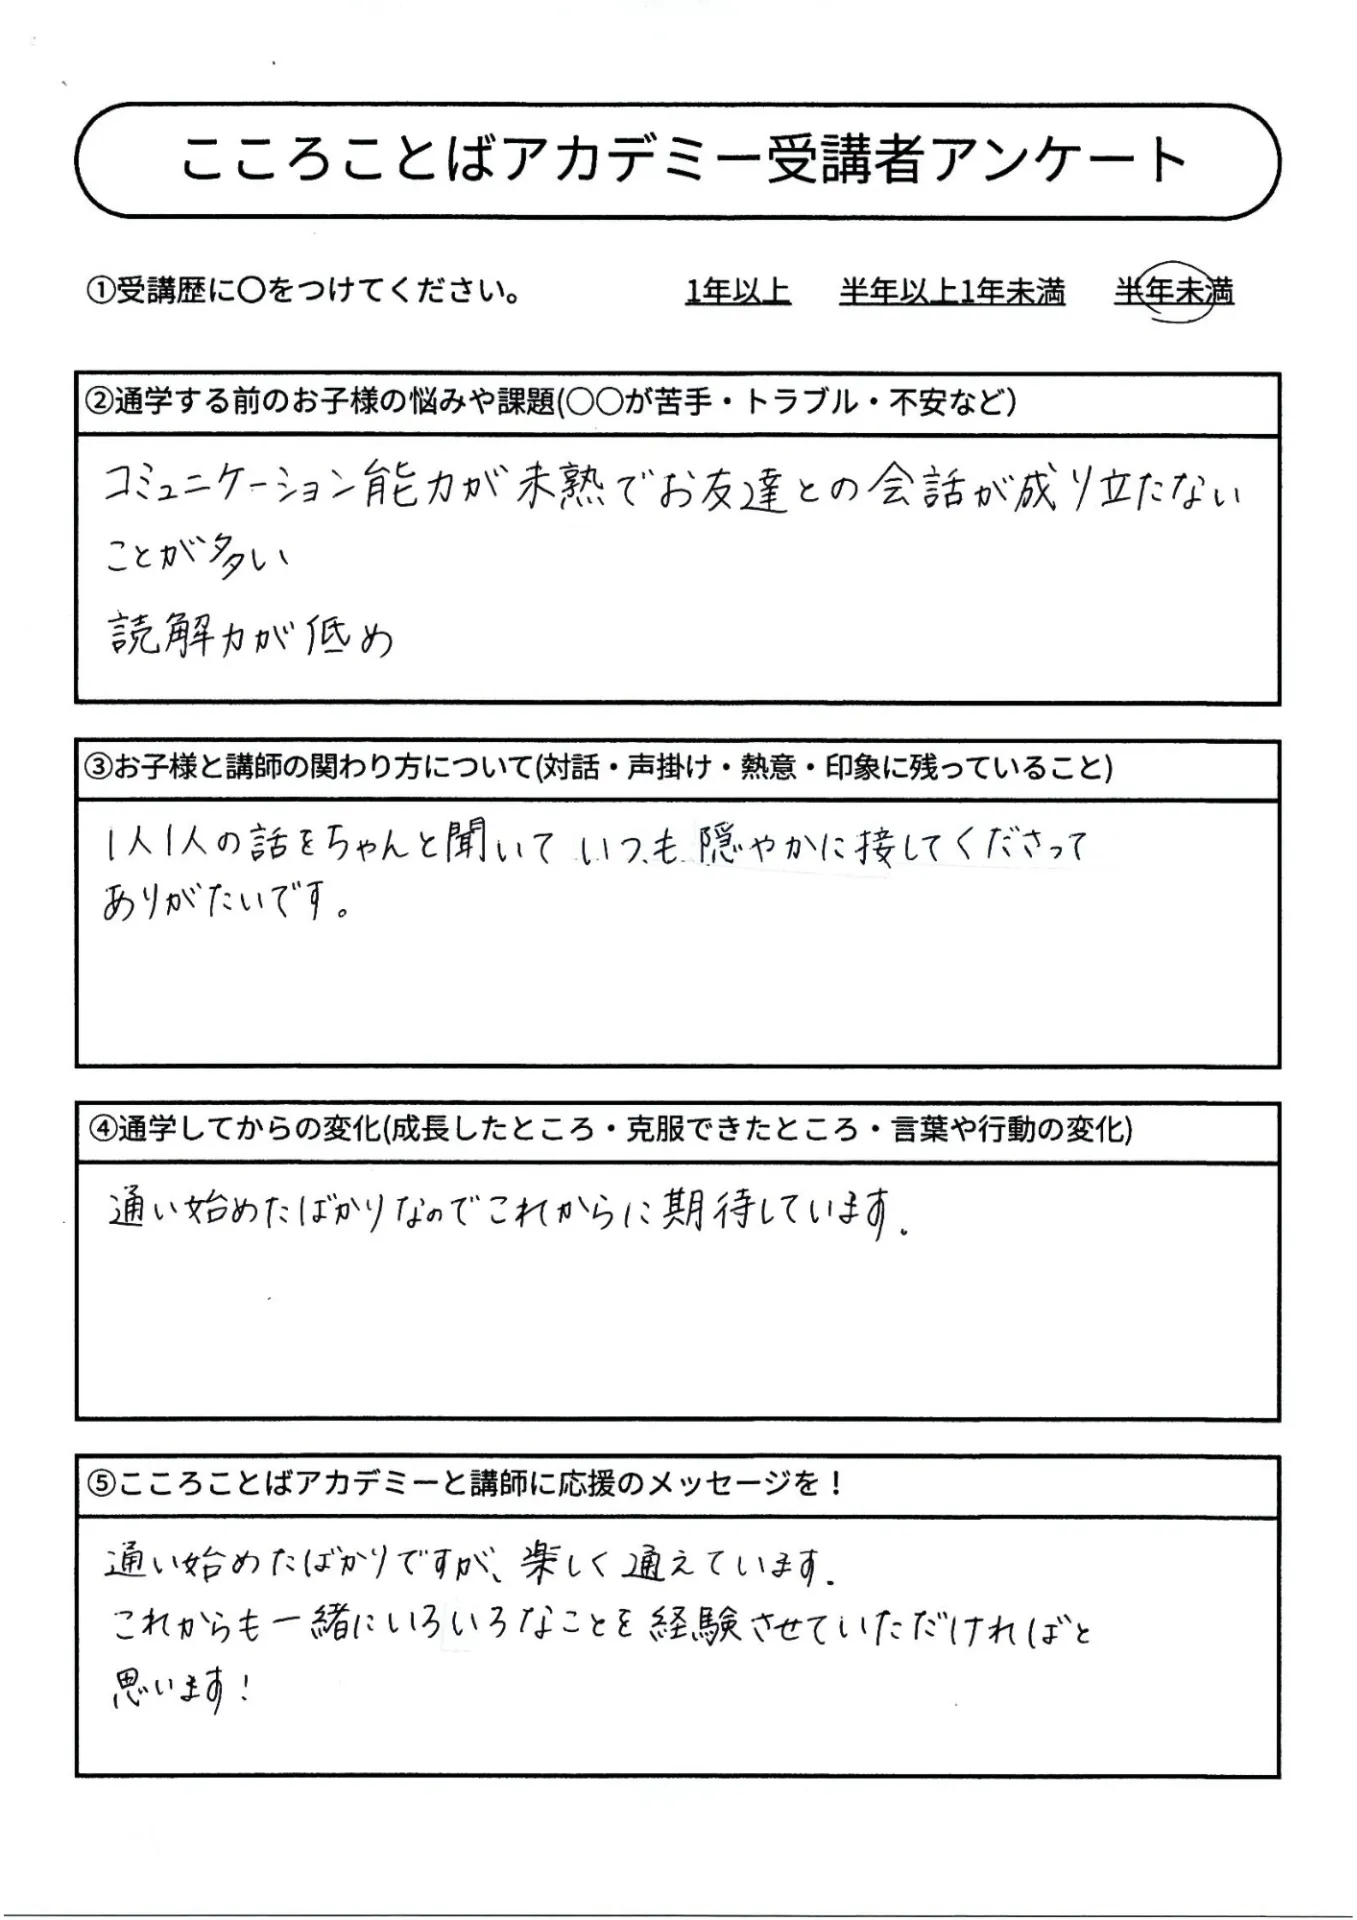 こころことばアカデミー受講者アンケート
①受講歴に〇をつけてください。 1年以上 半年以上1年未満 半年未満
②通学する前のお子様の悩みや課題(〇〇が苦手・トラブル・不安など)
コミュニケーション能力が未熟でお友達との会話が成り立たない
ことが多い
読解力が低め
③お子様と講師の関わり方について(対話・声掛け・熱意・印象に残っていること)
1人1人の話をちゃんと聞いていつも隠やかに接してくださって
ありがたいです。
④通学してからの変化(成長したところ・克服できたところ・言葉や行動の変化)
通い始めたばかりなのでこれからに期待しています.
⑤こころことばアカデミーと講師に応援のメッセージを！
通い始めたばかりですが、楽しく通えています.
これからも一緒にいろいろなことを経験させていただければと
思います!